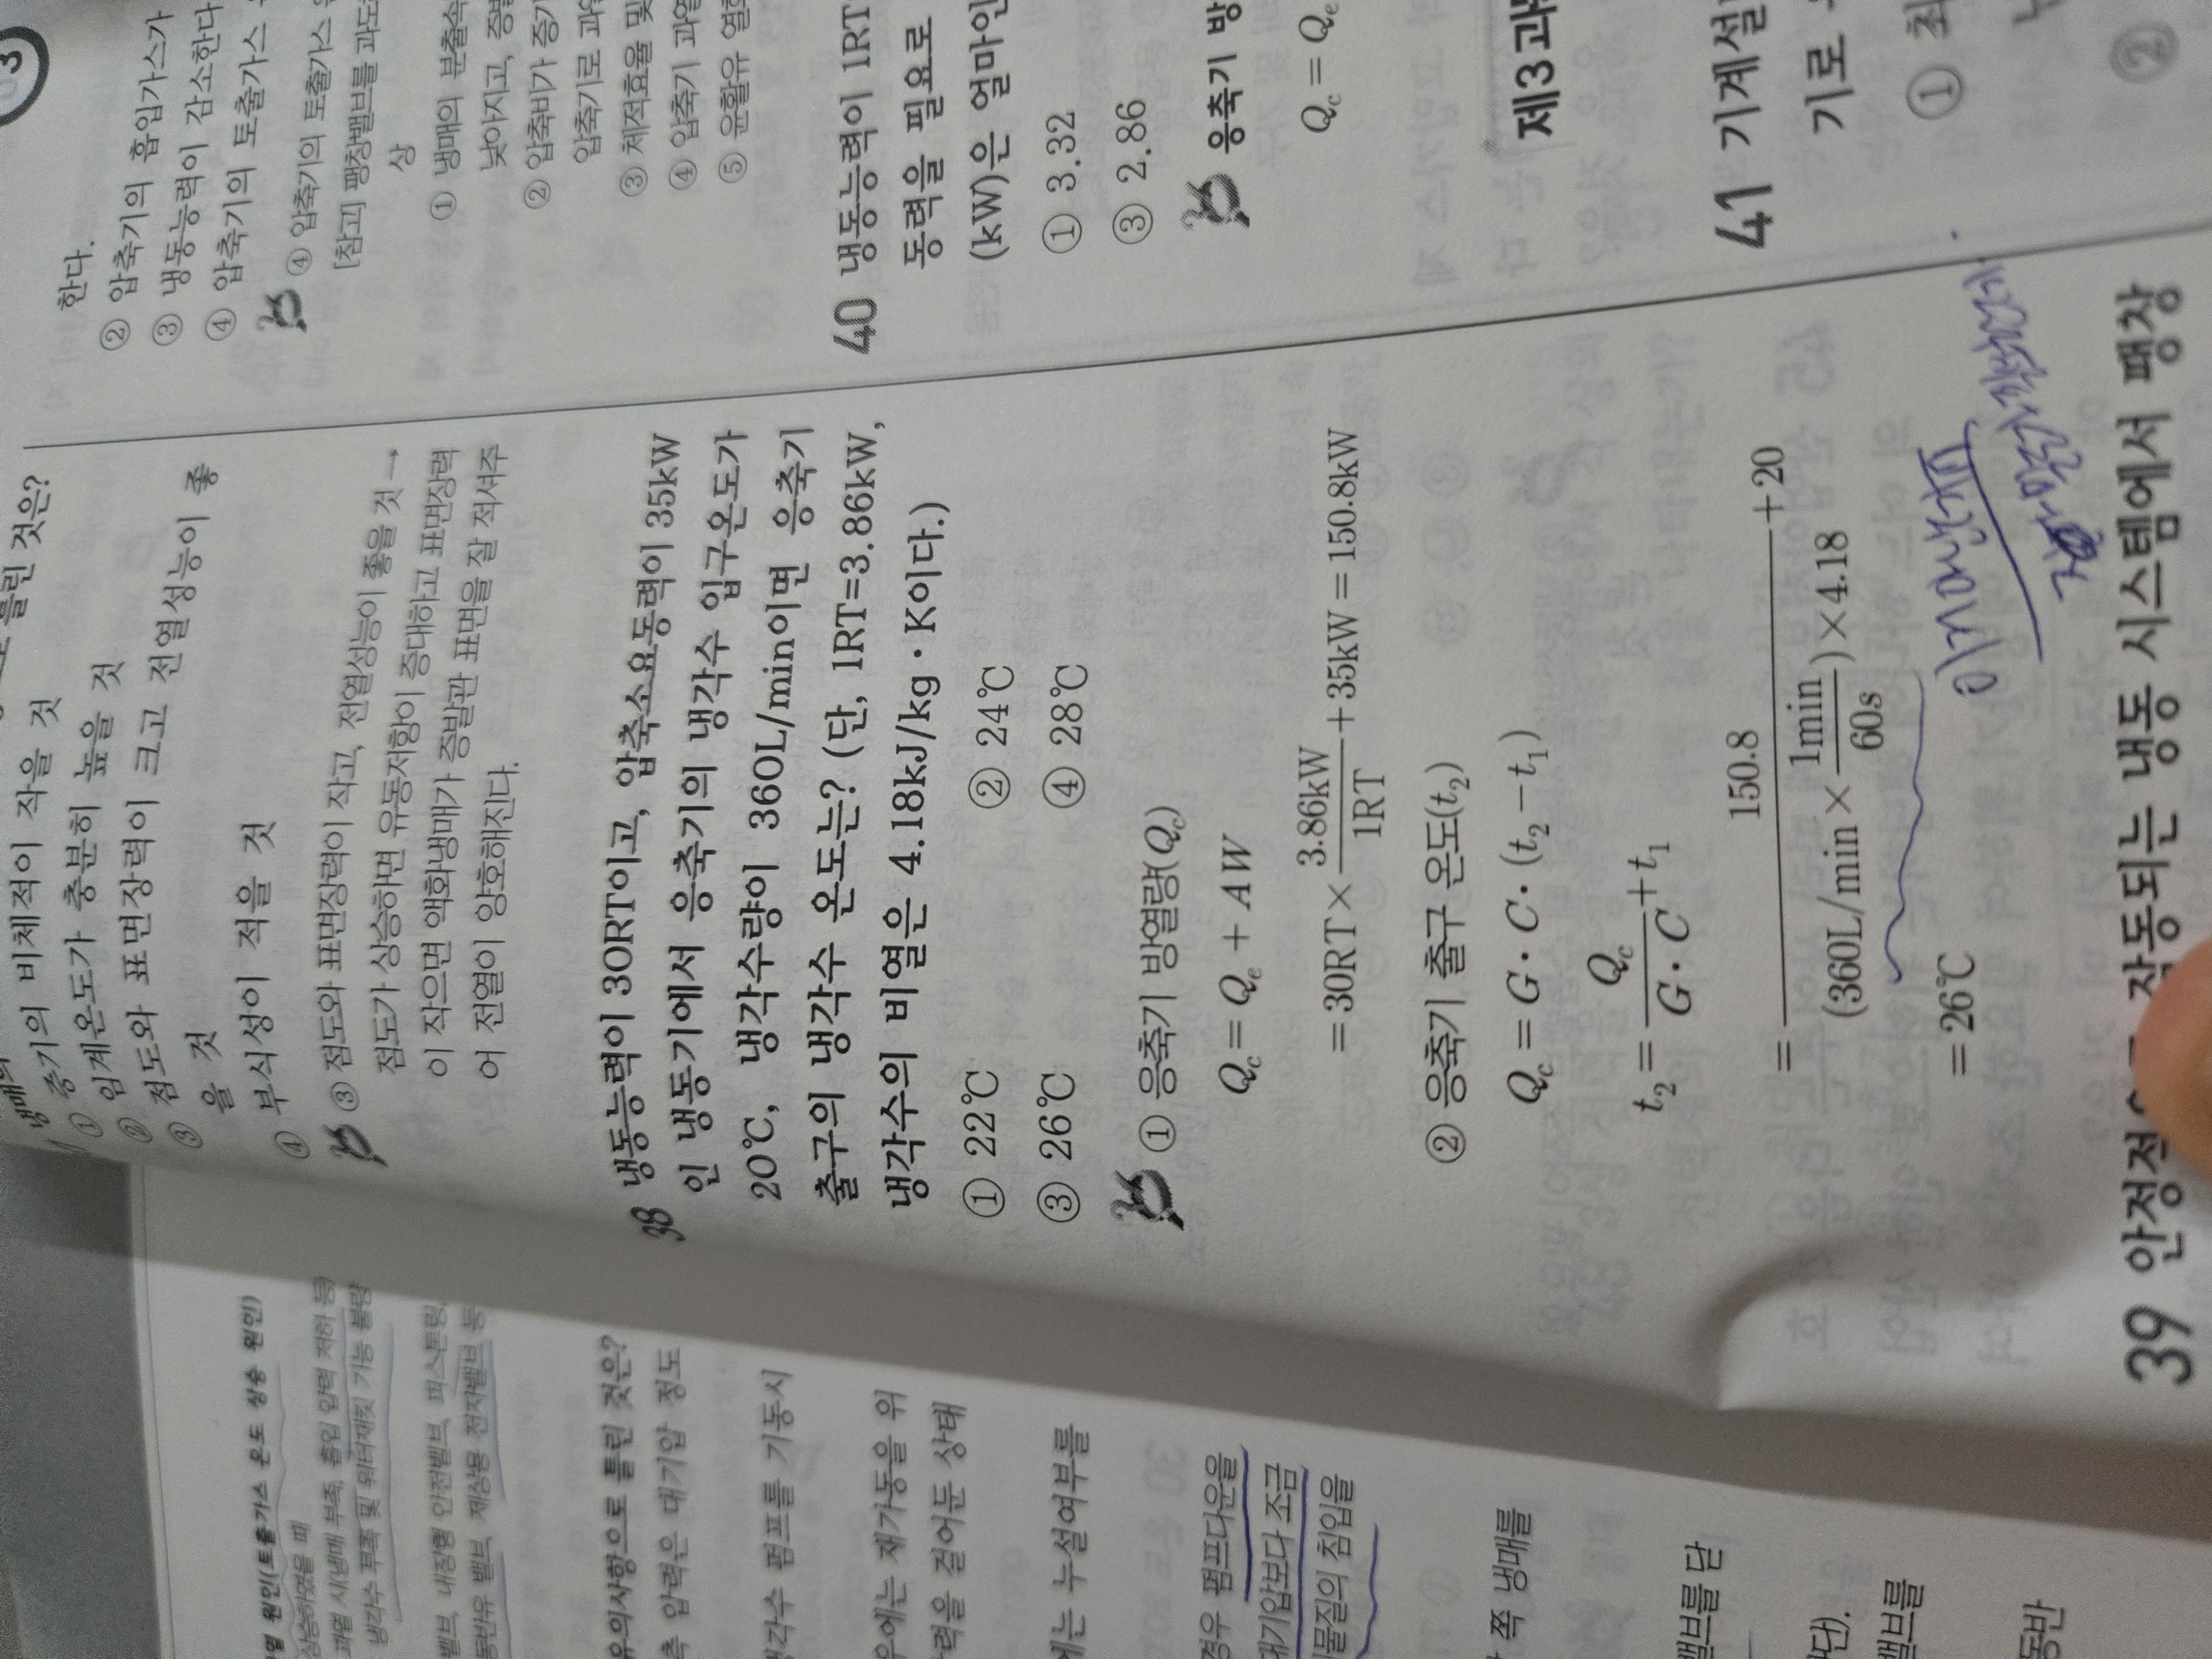 틀린 것은?
① 증기의 비체적이 작을 것
② 임계온도가 충분히 높을 것
③ 점도와 표면장력이 크고 전열성능이 좋
을 것
④ 부식성이 적을 것
③ 점도와 표면장력이 작고, 전열성능이 좋을 것→
점도가 상승하면 유동저항이 증대하고 표면장력
이 작으면 액화냉매가 증발관 표면을 잘 적셔주
어 전열이 양호해진다.
38 냉동능력이 30RT이고, 압축소요동력이 35kW
인 냉동기에서 응축기의 냉각수 입구온도가
20℃, 냉각수량이 360L/min이면 응축기
출구의 냉각수 온도는? (단, 1RT=3.86kW,
냉각수의 비열은 4.18kJ/kg·K이다.)
① 22℃ ② 24℃
③ 26℃ ④ 28℃
① 응축기 방열량(Qc)
Qc = Qe + AW
= 30RT × 3.86kW/1RT + 35kW = 150.8kW
② 응축기 출구 온도(t2)
Qc = G·C·(t2 − t1)
t2 = Qc/(G·C) + t1
= 150.8/((360L/min × 1min/60s) × 4.18) + 20
= 26℃
39 안정적 작동되는 냉동 시스템에서 팽창
한다.
② 압축기의 흡입가스가
③ 냉동능력이 감소한다
④ 압축기의 토출가스
④ 압축기의 토출가스
[참고] 팽창밸브를 과도
상
① 냉매의 분출속
낮아지고, 증발
② 압축비가 증가
압축기로 과열
③ 체적효율 및
④ 압축기 과열
⑤ 윤활유 열화
40 냉동능력이 1RT
동력을 필요로
(kW)은 얼마인
① 3.32
③ 2.86
응축기 방
Qc = Qe
제3과
41 기계설
기로
① 최
②
원인(토출가스 온도 상승 원인)
상승하였을 때
냉각수 부족 및 워터재킷 기능 불량
유의사항으로 틀린 것은?
축 압력은 대기압 정도
냉각수 펌프를 기동시
우에는 재가동을 위
력을 걸어둔 상태
에는 누설여부를
경우 펌프다운을
대기압보다 조금
물질의 침입을
쪽 냉매를
밸브를 닫
단).
밸브를
동반